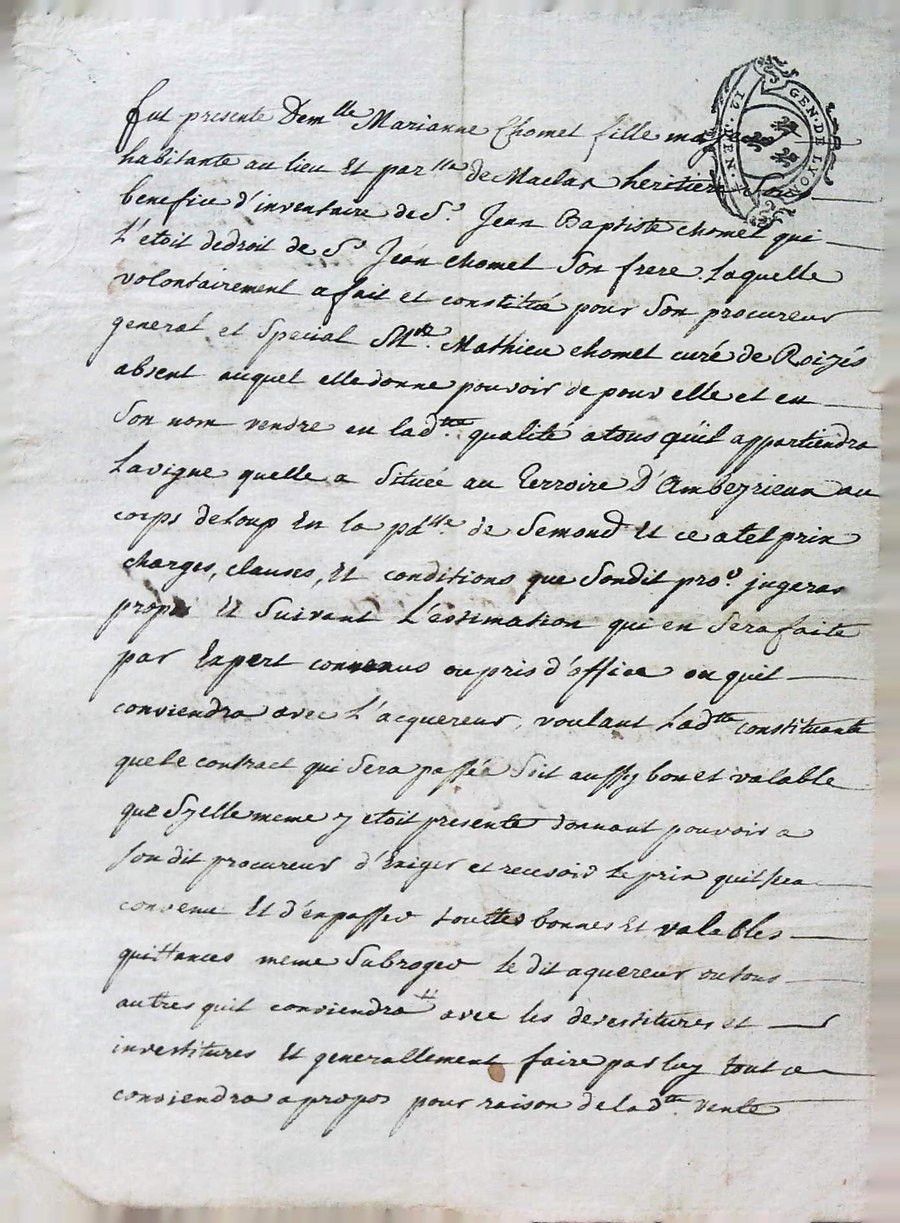 GEN · DE LYON
fut presente Dem.lle Marianne Chomet fille
habitante au lieu Et par.lle de Maclas heritiere
benefice d'inventaire de S.r Jean Baptiste chomet qui
L'etoit dedroit de S.r Jean chomet Son frere, Laquelle
volontairement a fait et constitué pour Son procureur
general et Special M.re Mathieu chomet curé de Roizés
absent auquel elle donne pouvoir de pour elle et en
Son nom vendre en lad.tte qualité atous quil appartiendra
La vigne quelle a Située au Terroire D'Ambeyrieux au
corps de Loup En la pd.lle de Semond Et ce a tel prix
charges, clauses, Et conditions que Sondit pro.r jugeras
propre Et Suivant L'estimation qui en Sera faite
par Expert convenus ou pris d'office ou quil
conviendra avec L'acquereur, voulant Lad.tte constituante
que le contract qui Sera passée Soit aussy bon et valable
que Sy elle meme y etoit presente donnant pouvoir a
Son dit procureur d'Exiger et recevoir Le prix quil sera
convenu Et d'en passer touttes bonnes Et valables
quittances meme Subroger Le dit aquereur ou tous
autres quil conviendra avec les devestitures et
investitures Et generallement faire par luy tout ce
conviendra a propos pour raison de lad.tte vente